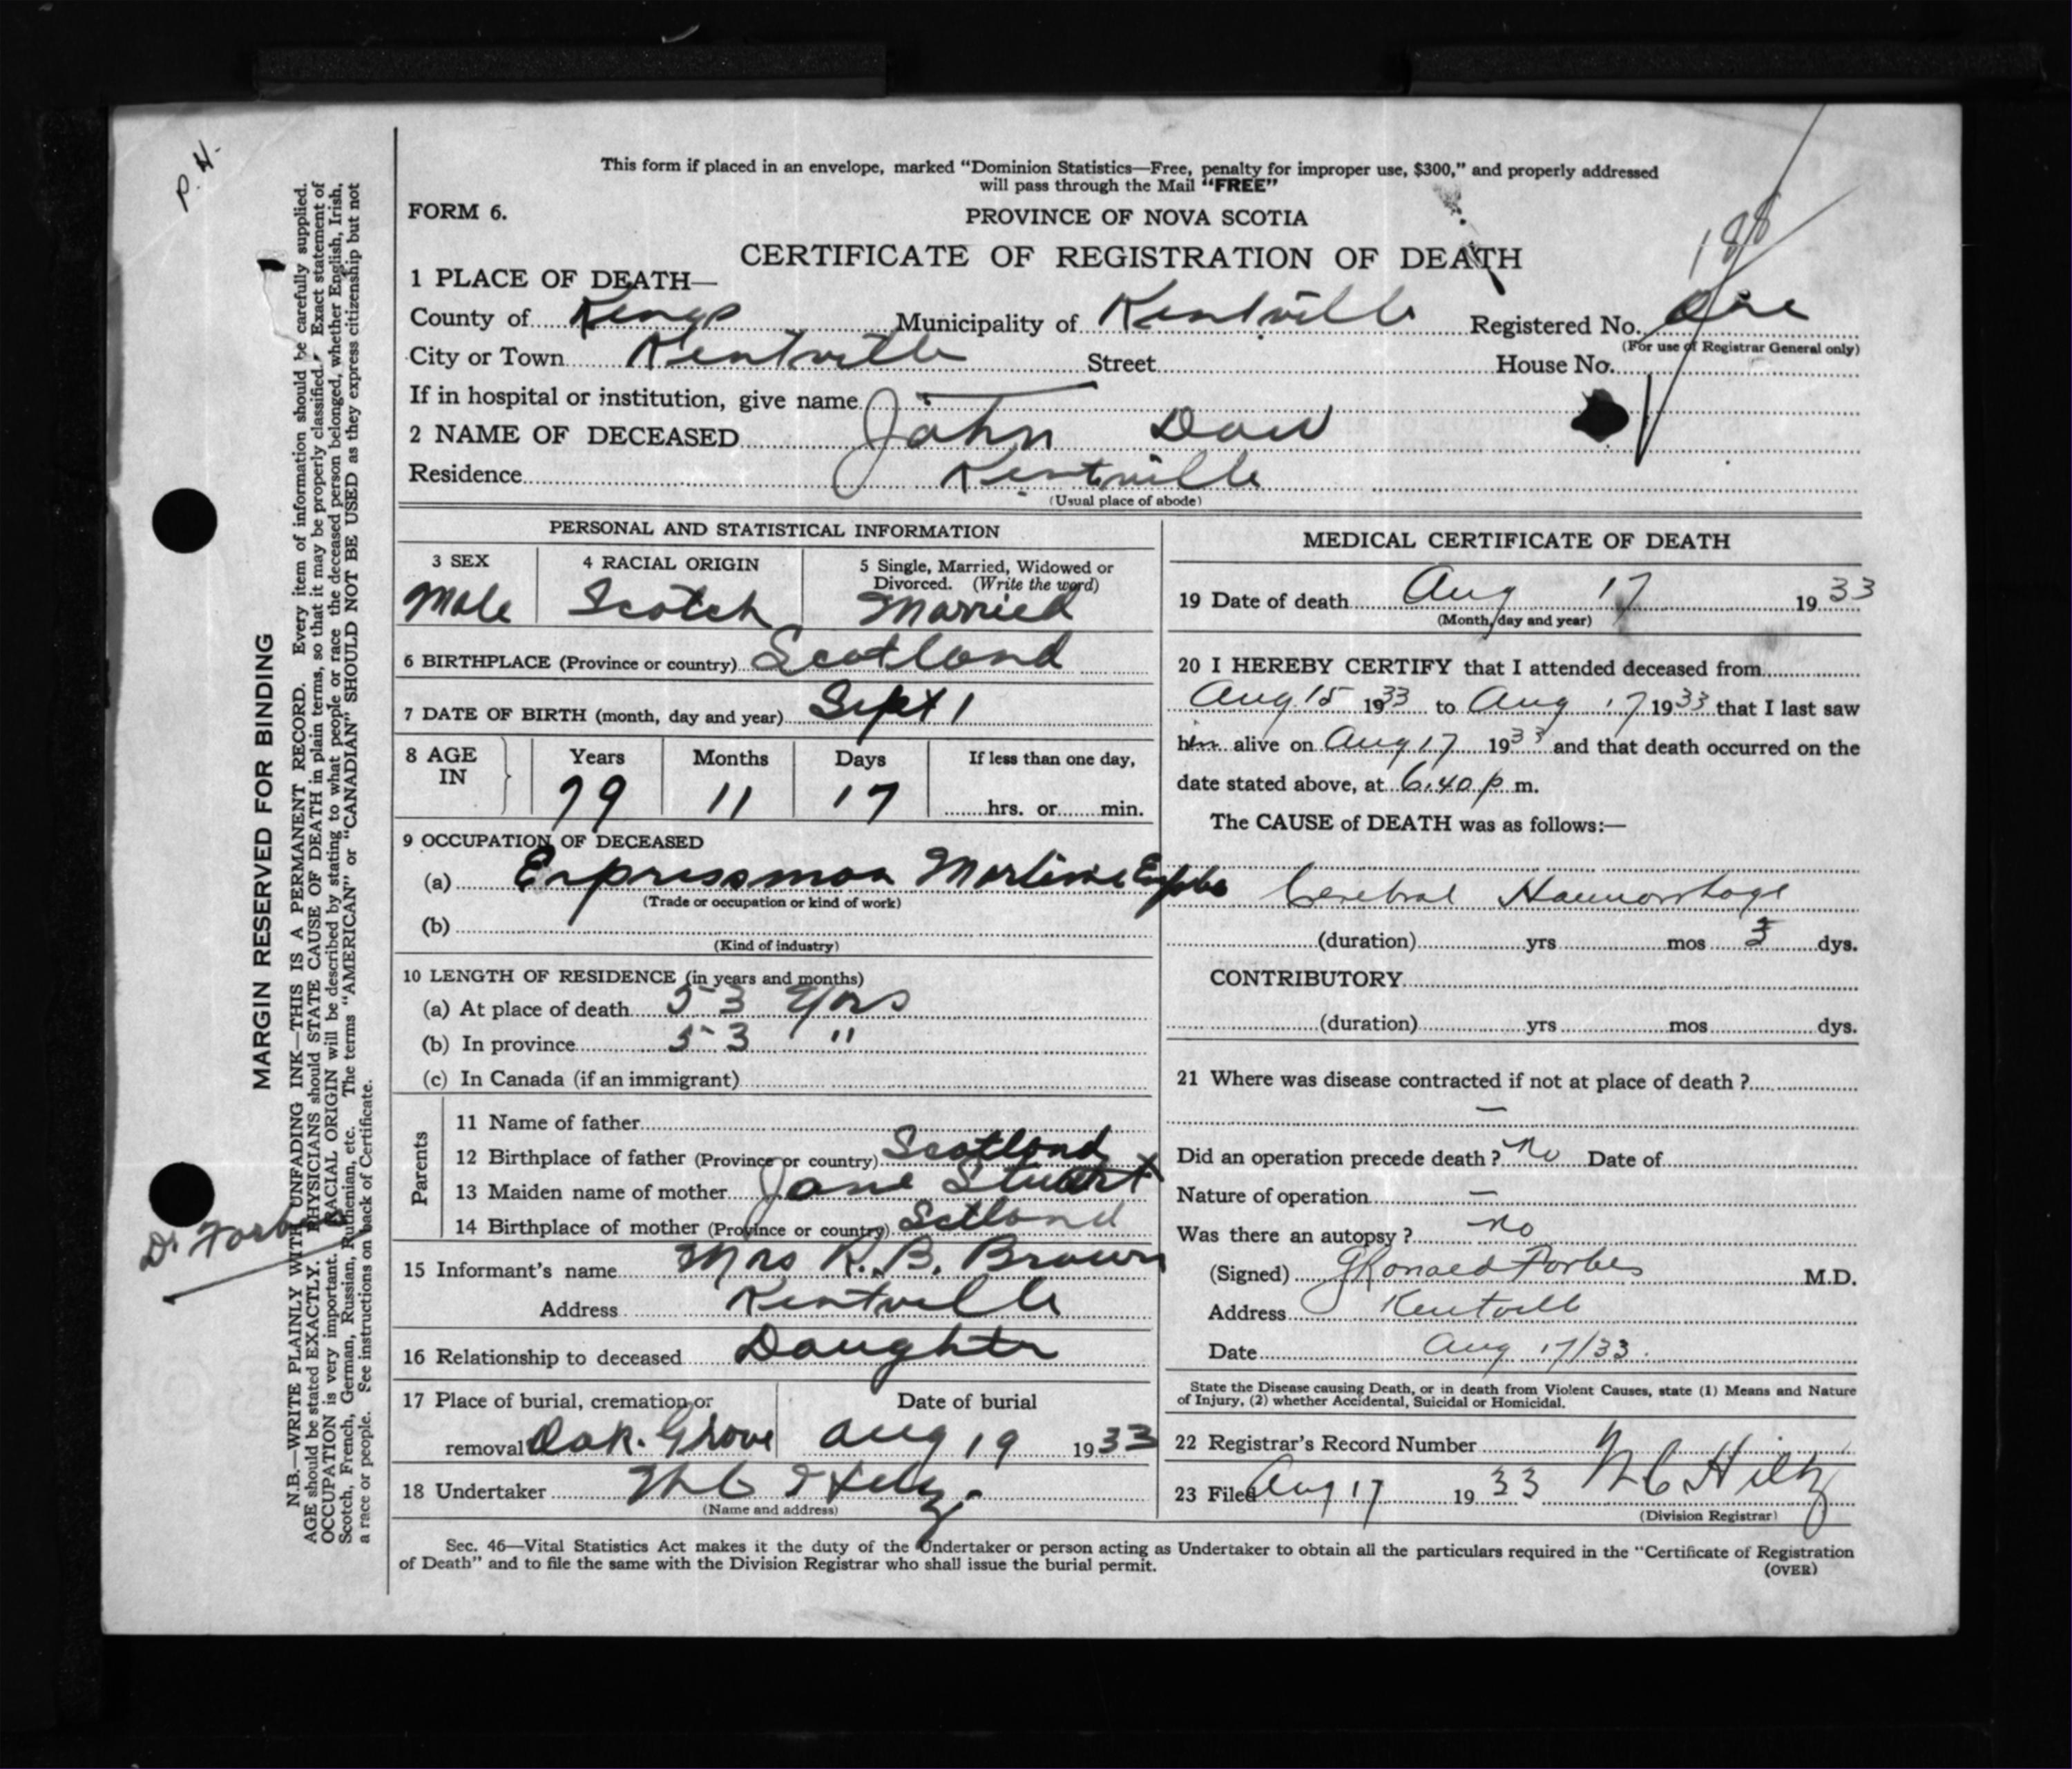 P.H.
This form if placed in an envelope, marked "Dominion Statistics—Free, penalty for improper use, $300," and properly addressed
will pass through the Mail "FREE"
FORM 6.
PROVINCE OF NOVA SCOTIA
CERTIFICATE OF REGISTRATION OF DEATH
188
1 PLACE OF DEATH—
County of Kings Municipality of Kentville Registered No.
(For use of Registrar General only)
City or Town Kentville Street House No.
If in hospital or institution, give name
2 NAME OF DECEASED John Dow
Residence Kentville
(Usual place of abode)
PERSONAL AND STATISTICAL INFORMATION
3 SEX 4 RACIAL ORIGIN 5 Single, Married, Widowed or
Divorced. (Write the word)
Male Scotch Married
6 BIRTHPLACE (Province or country) Scotland
7 DATE OF BIRTH (month, day and year) Sept 1
8 AGE IN Years Months Days If less than one day,
79 11 17 hrs. or min.
9 OCCUPATION OF DECEASED
(a) Expressman
(Trade or occupation or kind of work)
(b)
(Kind of industry)
10 LENGTH OF RESIDENCE (in years and months)
(a) At place of death 53 yrs
(b) In province 53 "
(c) In Canada (if an immigrant)
Parents
11 Name of father
12 Birthplace of father (Province or country) Scotland
13 Maiden name of mother Jane Stuart
14 Birthplace of mother (Province or country) Scotland
15 Informant's name Mrs R. B. Brown
Address Kentville
16 Relationship to deceased Daughter
17 Place of burial, cremation or Date of burial
removal Oak. Grove Aug 19 1933
18 Undertaker
(Name and address)
MEDICAL CERTIFICATE OF DEATH
19 Date of death Aug 17 1933
(Month, day and year)
20 I HEREBY CERTIFY that I attended deceased from
Aug 15 1933 to Aug 17 1933 that I last saw
him alive on Aug 17 1933 and that death occurred on the
date stated above, at 6.40 p m.
The CAUSE of DEATH was as follows:—
Cerebral Haemorrhage
(duration) yrs mos 3 dys.
CONTRIBUTORY
(duration) yrs mos dys.
21 Where was disease contracted if not at place of death ?
—
Did an operation precede death ? No Date of
Nature of operation —
Was there an autopsy ? No
(Signed) G Ronald Forbes M.D.
Address Kentville
Date Aug 17/33.
State the Disease causing Death, or in death from Violent Causes, state (1) Means and Nature
of Injury, (2) whether Accidental, Suicidal or Homicidal.
22 Registrar's Record Number
23 Filed Aug 17 1933 Hiltz
(Division Registrar)
Sec. 46—Vital Statistics Act makes it the duty of the Undertaker or person acting as Undertaker to obtain all the particulars required in the "Certificate of Registration
of Death" and to file the same with the Division Registrar who shall issue the burial permit. (OVER)
MARGIN RESERVED FOR BINDING
N.B.—WRITE PLAINLY WITH UNFADING INK—THIS IS A PERMANENT RECORD. Every item of information should be carefully supplied.
AGE should be stated EXACTLY. PHYSICIANS should STATE CAUSE OF DEATH in plain terms, so that it may be properly classified. Exact statement of
OCCUPATION is very important. RACIAL ORIGIN will be described by stating to what people or race the deceased person belonged, whether English, Irish,
Scotch, French, German, Russian, Ruthenian, etc. The terms "AMERICAN" or "CANADIAN" SHOULD NOT BE USED as they express citizenship but not
a race or people. See instructions on back of Certificate.
Dr Forbes